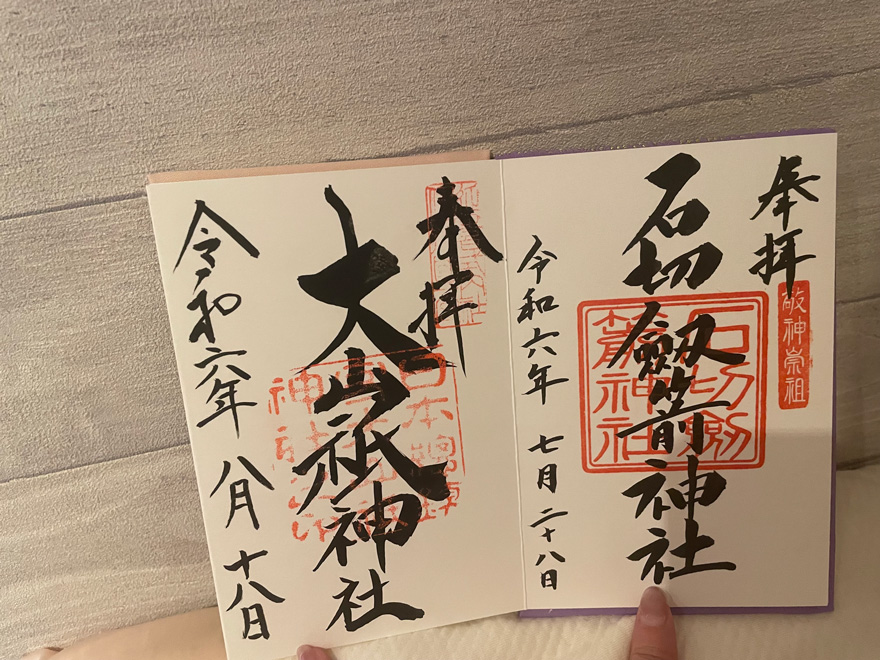 奉拝
敬神崇祖
石切劔箭神社
石切劔
箭神社
令和六年 七月 二十八日
奉拝
大山祇神社
日本總鎮
令和六年 八月 十八日